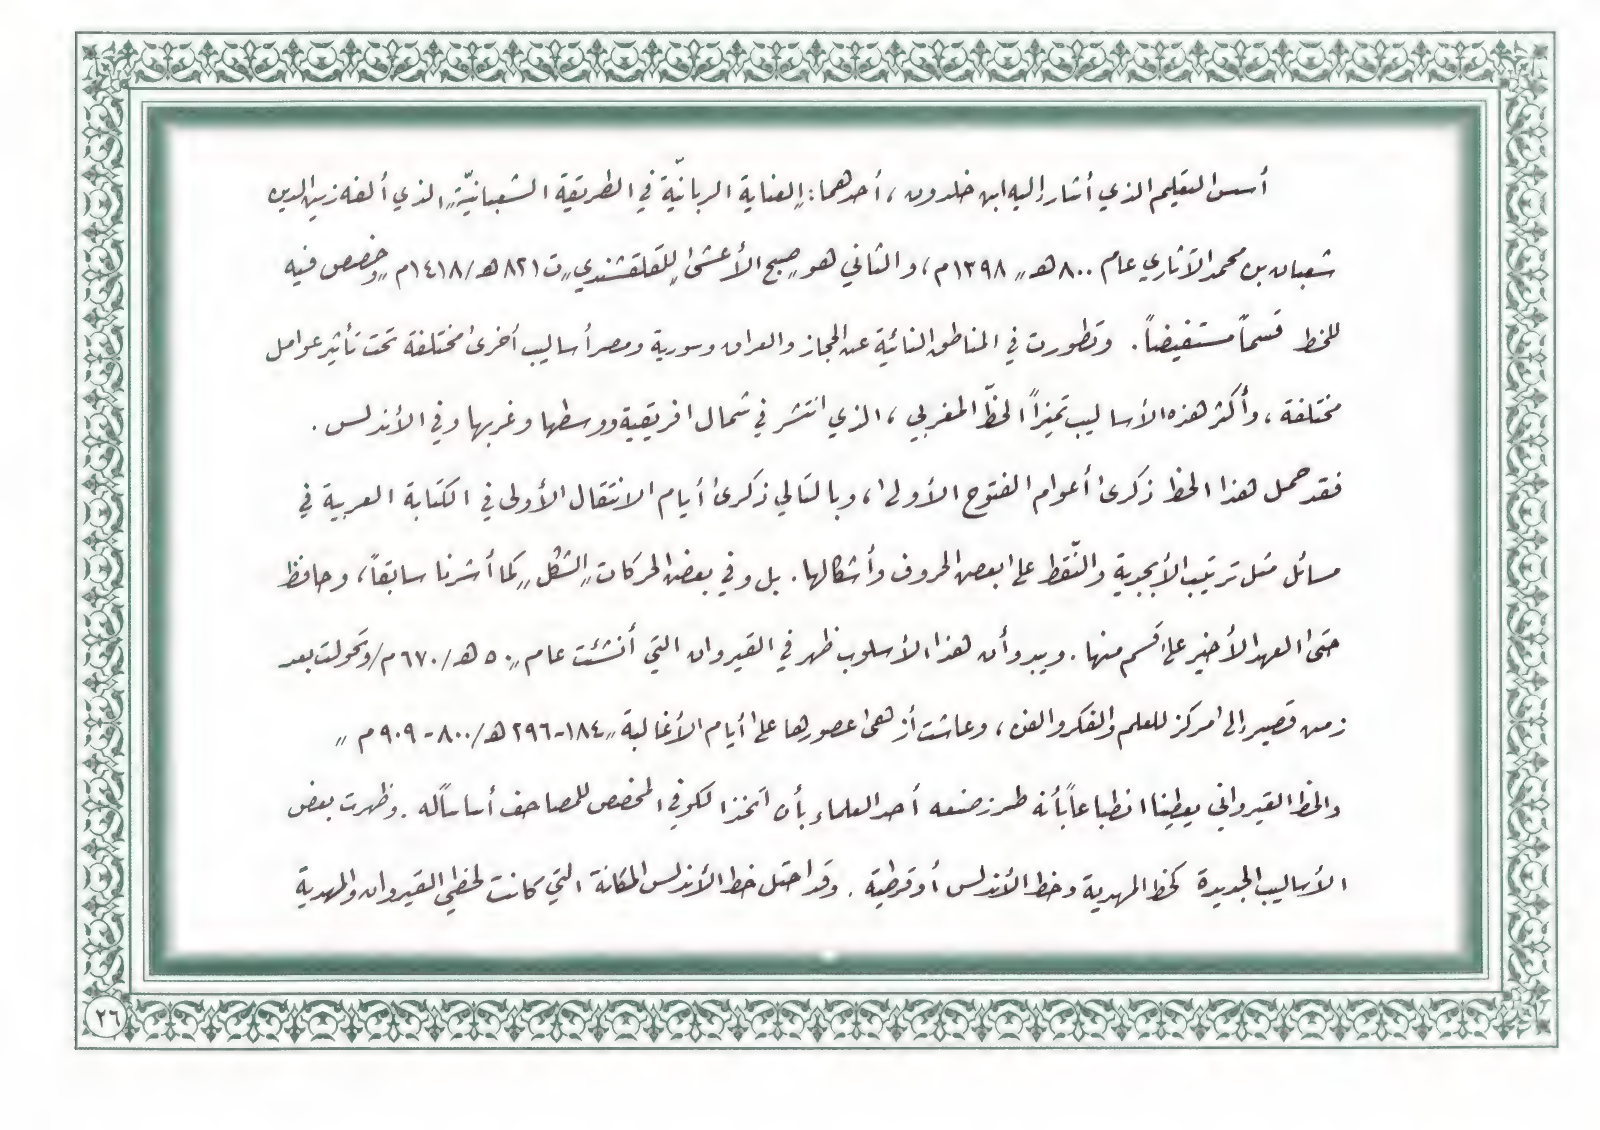 أسس التعليم الذي أشار إليه ابن خلدون ، أحدهما: "العناية الربانيّة في الطريقة الشعبانيّة" الذي ألفه زين الدين
شعبان بن محمد الآثاري عام ٨٠٠هـ " ١٣٩٨م ، والثاني هو "صبح الأعشى" للقلقشندي "ت ٨٢١هـ/١٤١٨م" وخصص فيه
للخط قسماً مستفيضاً . وتطورت في المناطق النائية عن الحجاز والعراق وسورية ومصر أساليب أخرى مختلفة تحت تأثير عوامل
مختلفة ، وأكثر هذه الأساليب تميزاً الخطّ المغربي ، الذي انتشر في شمال افريقية ووسطها وغربها وفي الأندلس .
فقد حمل هذا الخط ذكرى أعوام الفتوح الأولى ، وبالتالي ذكرى أيام الانتقال الأولى في الكتابة العربية في
مسائل مثل ترتيب الأبجدية والنّقط على بعض الحروف وأشكالها . بل وفي بعض الحركات "الشكل" كما أشرنا سابقاً ، وحافظ
حتى العهد الأخير على قسم منها . ويبدو أن هذا الأسلوب ظهر في القيروان التي أنشئت عام "٥٠هـ/٦٧٠م/ وتحولت بعد
زمن قصير إلى مركز للعلم والفكر والفن ، وعاشت أزهى عصورها على أيام الأغالبة "١٨٤-٢٩٦هـ/٨٠٠-٩٠٩م "
والخط القيرواني يعطينا انطباعاً بأنه طرز صنعه أحد العلماء بأن اتخذ الكوفي المخصص للمصاحف أساساً له . وظهرت بعض
الأساليب الجديدة كخط المهدية وخط الأندلس أو قرطبة . وقد احتل خط الأندلس المكانة التي كانت لخطي القيروان والمهدية
٢٦